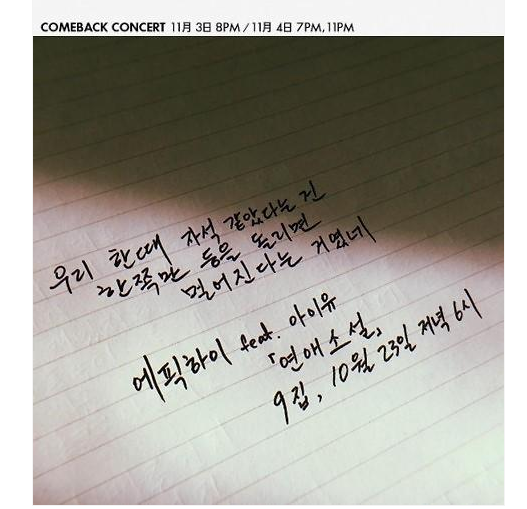 COMEBACK CONCERT 11月 3日 8PM / 11月 4日 7PM, 11PM
우리 한때 자석 같았다는 건
한쪽만 등을 돌리면
멀어진다는 거였네
에픽하이 feat. 아이유
「연애소설」
9집, 10월 23일 저녁 6시